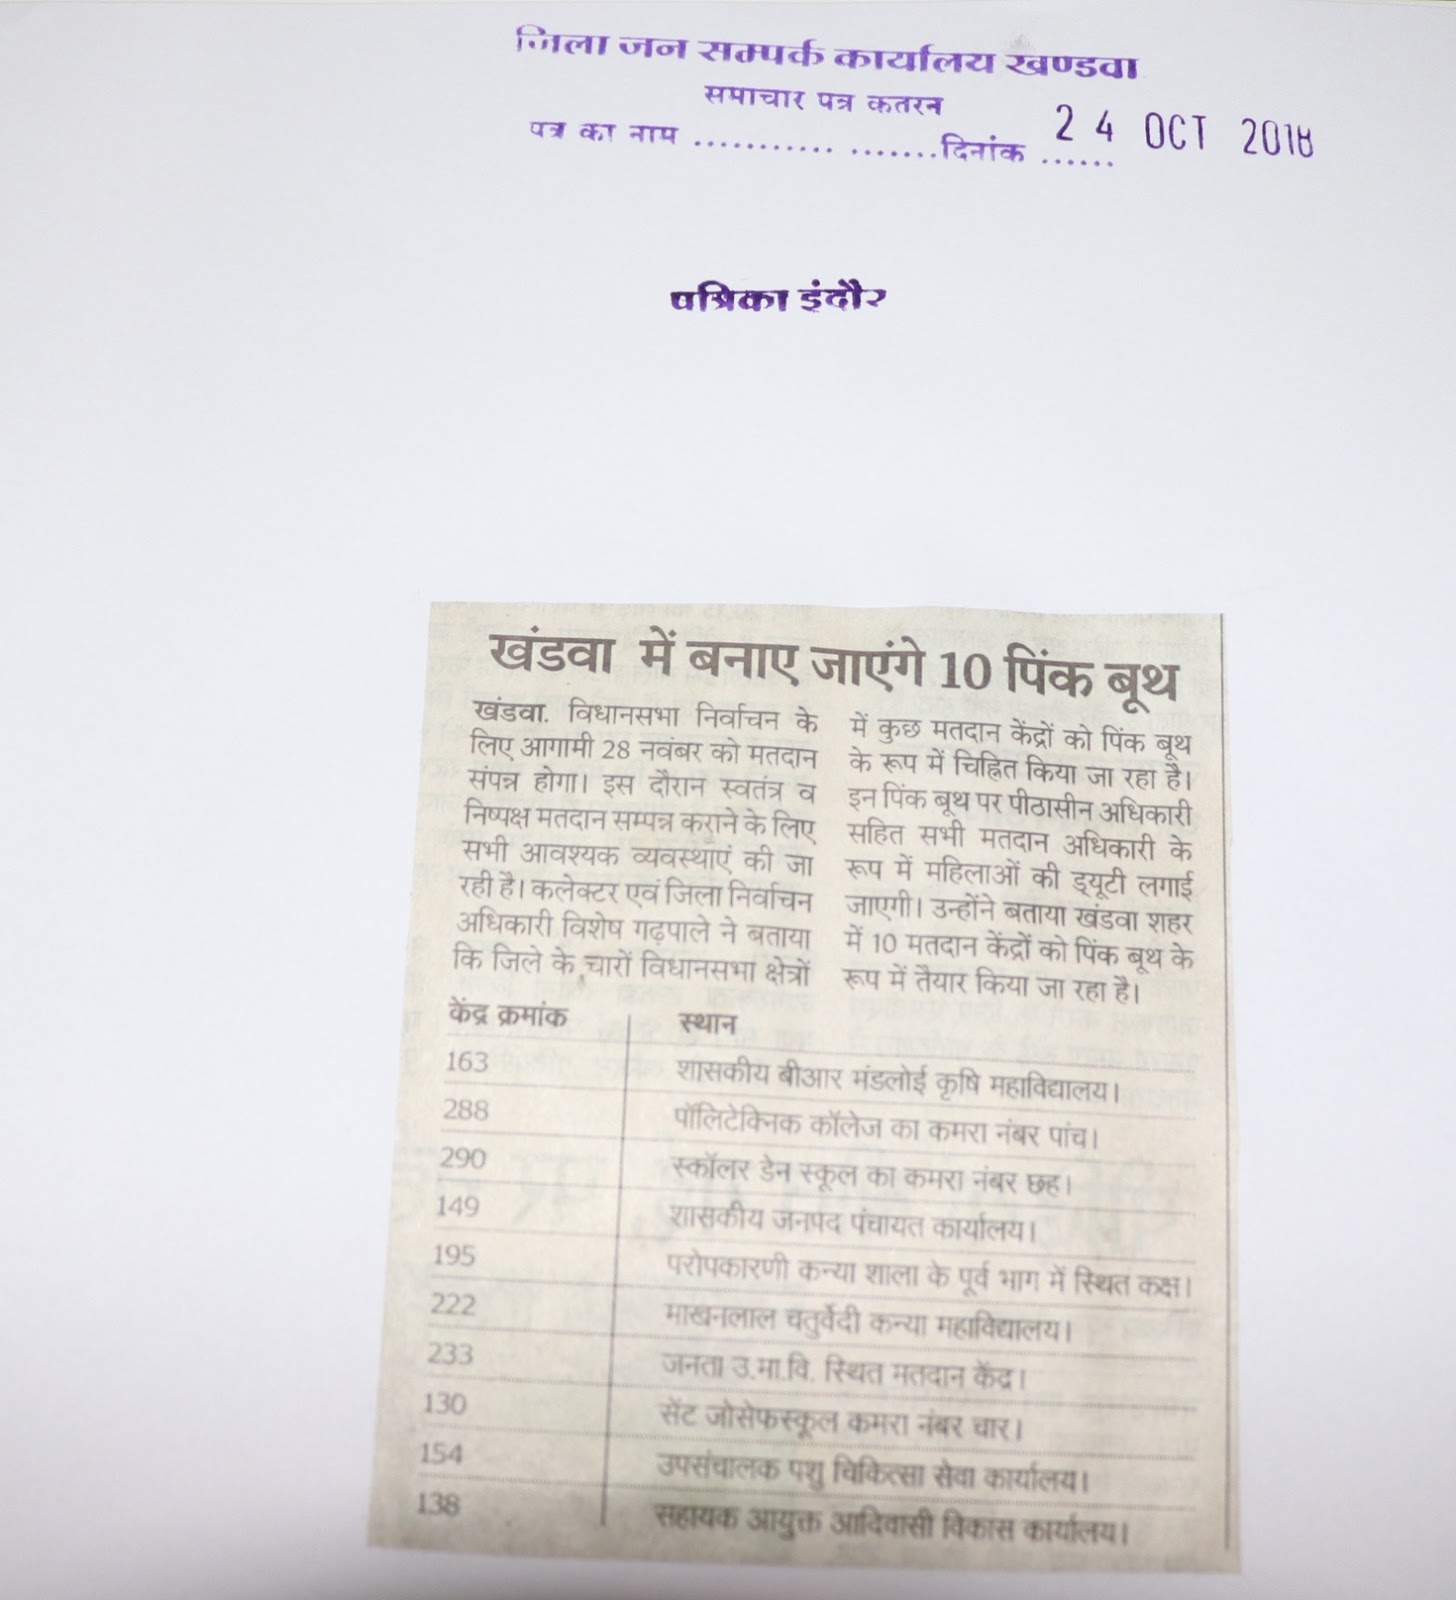 जिला जन सम्पर्क कार्यालय खण्डवा
समाचार पत्र कतरन
पत्र का नाम ........... .......दिनांक ...... 24 OCT 2018
पत्रिका इंदौर
खंडवा में बनाए जाएंगे 10 पिंक बूथ
खंडवा. विधानसभा निर्वाचन के
लिए आगामी 28 नवंबर को मतदान
संपन्न होगा। इस दौरान स्वतंत्र व
निष्पक्ष मतदान सम्पन्न कराने के लिए
सभी आवश्यक व्यवस्थाएं की जा
रही है। कलेक्टर एवं जिला निर्वाचन
अधिकारी विशेष गढ़पाले ने बताया
कि जिले के चारों विधानसभा क्षेत्रों
में कुछ मतदान केंद्रों को पिंक बूथ
के रूप में चिह्नित किया जा रहा है।
इन पिंक बूथ पर पीठासीन अधिकारी
सहित सभी मतदान अधिकारी के
रूप में महिलाओं की ड्यूटी लगाई
जाएगी। उन्होंने बताया खंडवा शहर
में 10 मतदान केंद्रों को पिंक बूथ के
रूप में तैयार किया जा रहा है।
केंद्र क्रमांक स्थान
163 शासकीय बीआर मंडलोई कृषि महाविद्यालय।
288 पॉलिटेक्निक कॉलेज का कमरा नंबर पांच।
290 स्कॉलर डेन स्कूल का कमरा नंबर छह।
149 शासकीय जनपद पंचायत कार्यालय।
195 परोपकारणी कन्या शाला के पूर्व भाग में स्थित कक्ष।
222 माखनलाल चतुर्वेदी कन्या महाविद्यालय।
233 जनता उ.मा.वि. स्थित मतदान केंद्र।
130 सेंट जोसेफस्कूल कमरा नंबर चार।
154 उपसंचालक पशु चिकित्सा सेवा कार्यालय।
138 सहायक आयुक्त आदिवासी विकास कार्यालय।